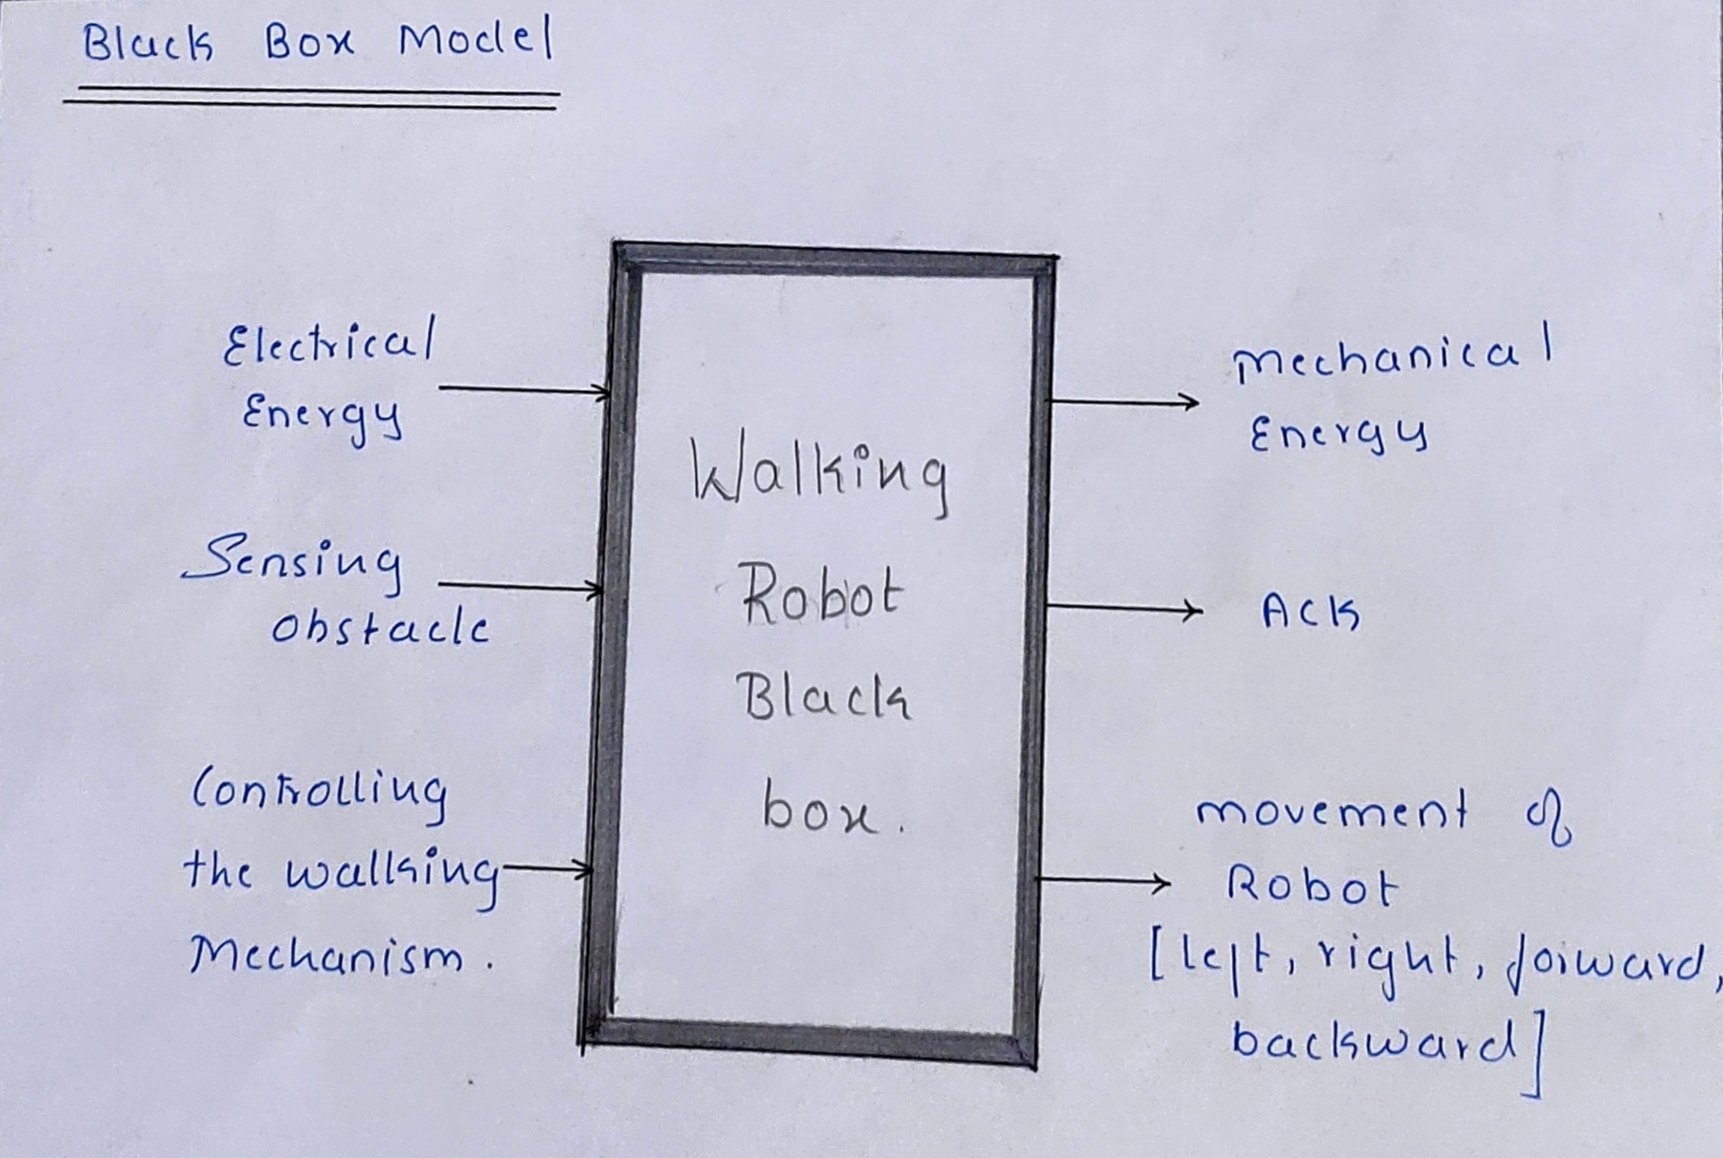 Black Box Model
Electrical
Energy
Sensing
obstacle
Controlling
the walking
Mechanism.
Walking
Robot
Black
box.
Mechanical
Energy
Ack
movement of
Robot
[left, right, forward,
backward]